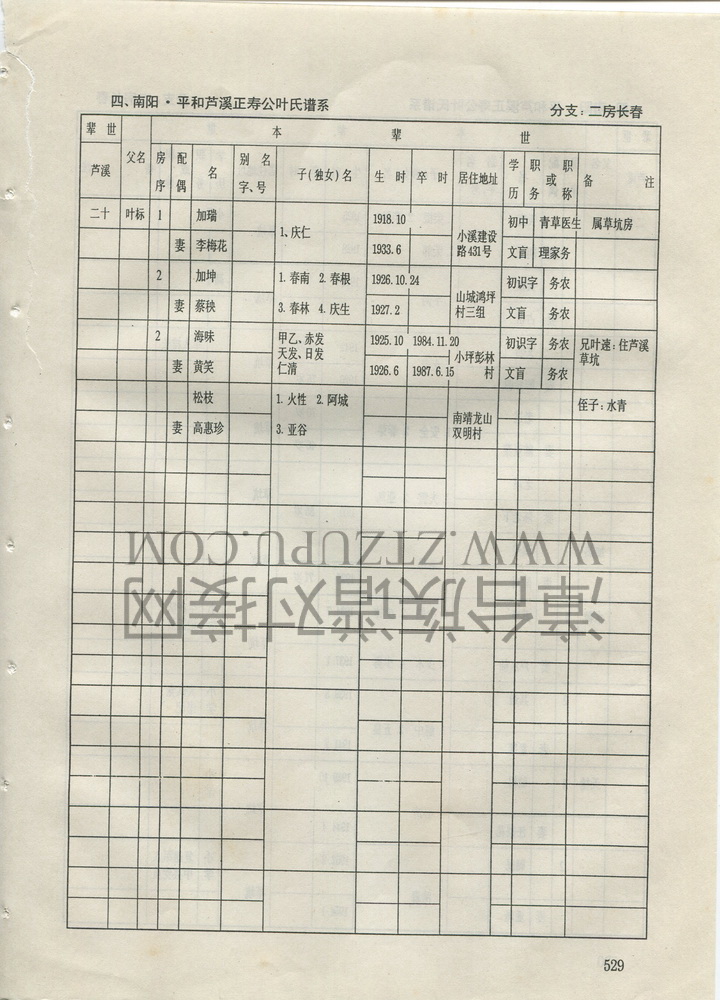 四、南阳·平和芦溪正寿公叶氏谱系 分支：二房长春
辈世 本辈世
芦溪 父名 房序 配偶 名 别名字、号 子(独女)名 生时 卒时 居住地址 学历 职务 职或称 备注
二十 叶标 1 加瑞 1、庆仁 1918.10 小溪建设路431号 初中 青草医生 属草坑房
妻 李梅花 1933.6 文盲 理家务
2 加坤 1.春南 2.春根 1926.10.24 山城鸿坪村三组 初识字 务农
妻 蔡秧 3.春林 4.庆生 1927.2 文盲 务农
2 海味 甲乙、赤发 1925.10 1984.11.20 小坪彭林村 初识字 务农 兄叶速：住芦溪草坑
天发、日发
妻 黄笑 仁清 1926.6 1987.6.15 文盲 务农
松枝 1.火性 2.阿城 南靖龙山双明村 侄子：水青
妻 高惠珍 3.亚谷
WWW.ZTZUPU.COM
漳台族谱对接网
529